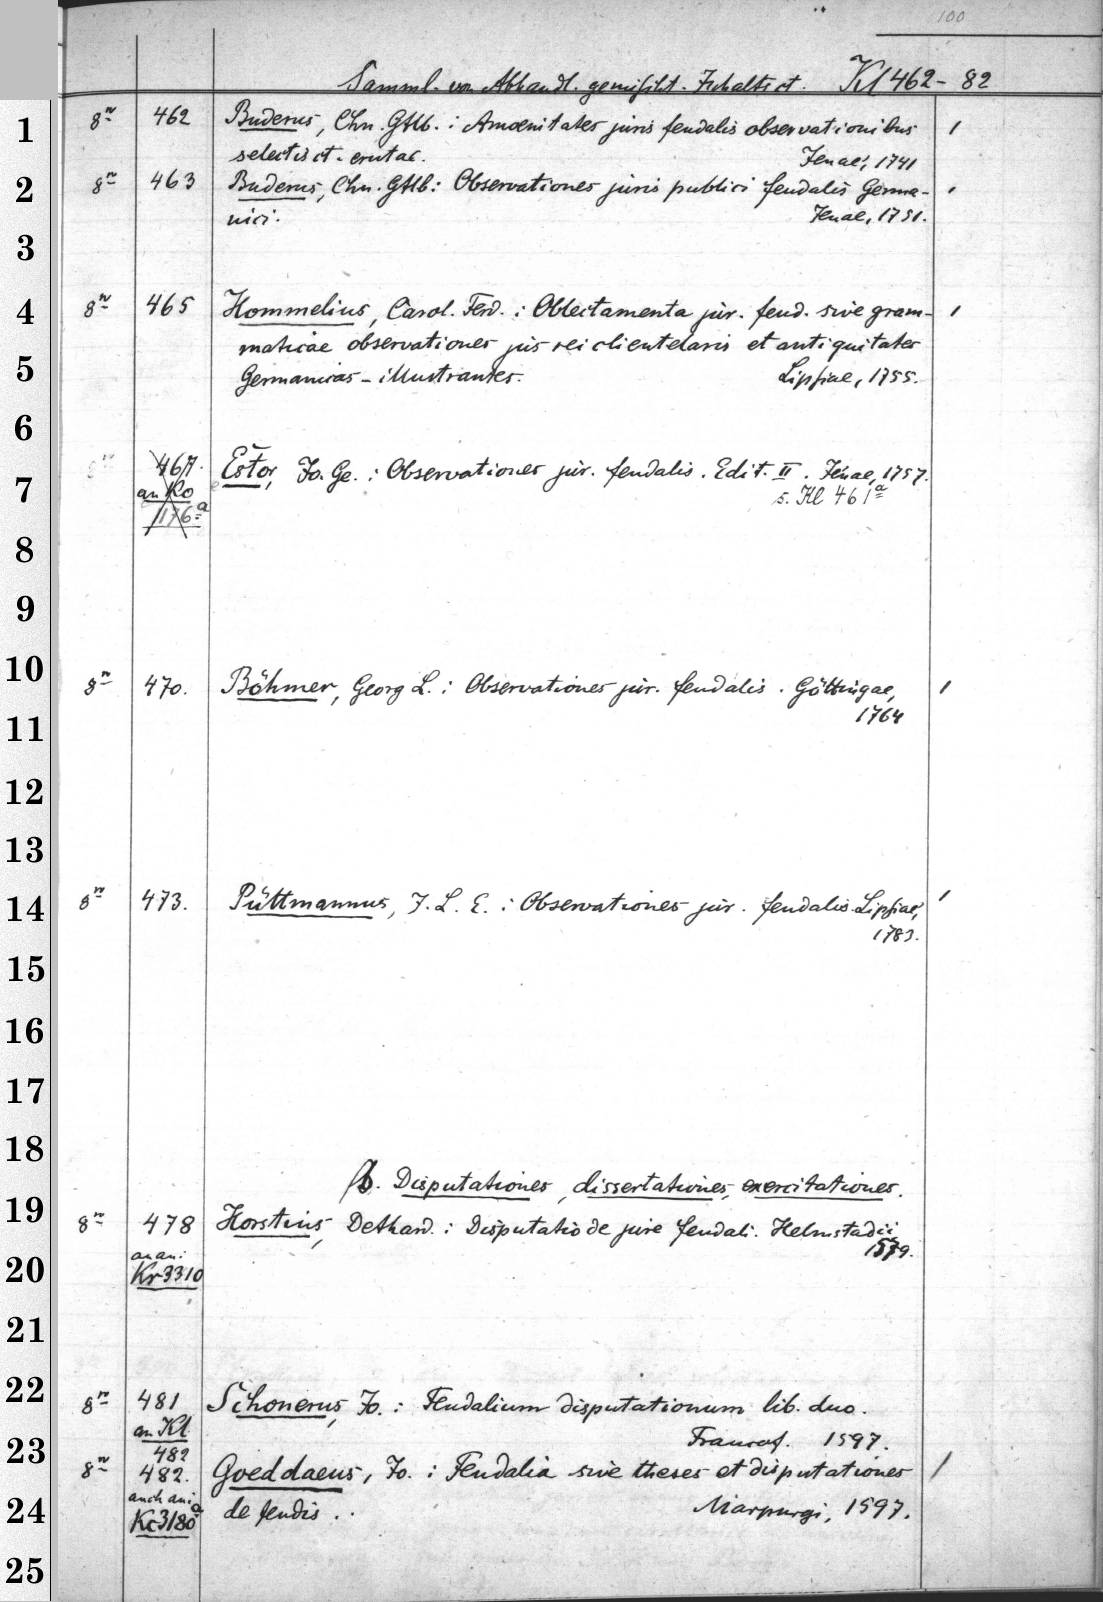 100
Samml. von Abhandl. gemischt. Inhalts ct. Kl 462 - 82
1 8º 462 Buderus, Chn. Gttlb. : Amoenitates juris feudalis observationibus
selectis ct. erutae. Jenae, 1741
2 8º 463 Buderus, Chn. Gttlb: Observationes juris publici feudalis Germa-
nici. Jenae, 1751.
3
4 8º 465 Hommelius, Carol. Ferd. : Oblectamenta jur. feud. sive gram-
maticae observationes jus rei clientelaris et antiquitates
5 Germanicas - illustrantes. Lipsiae, 1755.
6
467. Estor, Jo. Ge. : Observationes jur. feudalis. Edit. II. Jenae, 1757.
7 an Ko s. Kl 461a
1176a
8
9
10 8º 470. Böhmer, Georg L. : Observationes jur. feudalis. Göttingae,
11 1764
12
13
14 8º 473. Püttmannus, J. L. E. : Observationes jur. feudalis. Lipsiae,
1783.
15
16
17
18
b. Disputationes, dissertationes, exercitationes.
19 8º 478 Horstius, Dethard. : Disputatio de jure feudali. Helmstadii
an ani 1579.
20 Kr 3310
21
22 8º 481 Schonerus, Jo. : Feudalium disputationum lib. duo.
an Kl Francof. 1597.
23 482
8º 482. Goeddaeus, Jo. : Feudalia sive theses et disputationes
auch ani
24 Kc 3180a de feudis. Marpurgi, 1597.
25